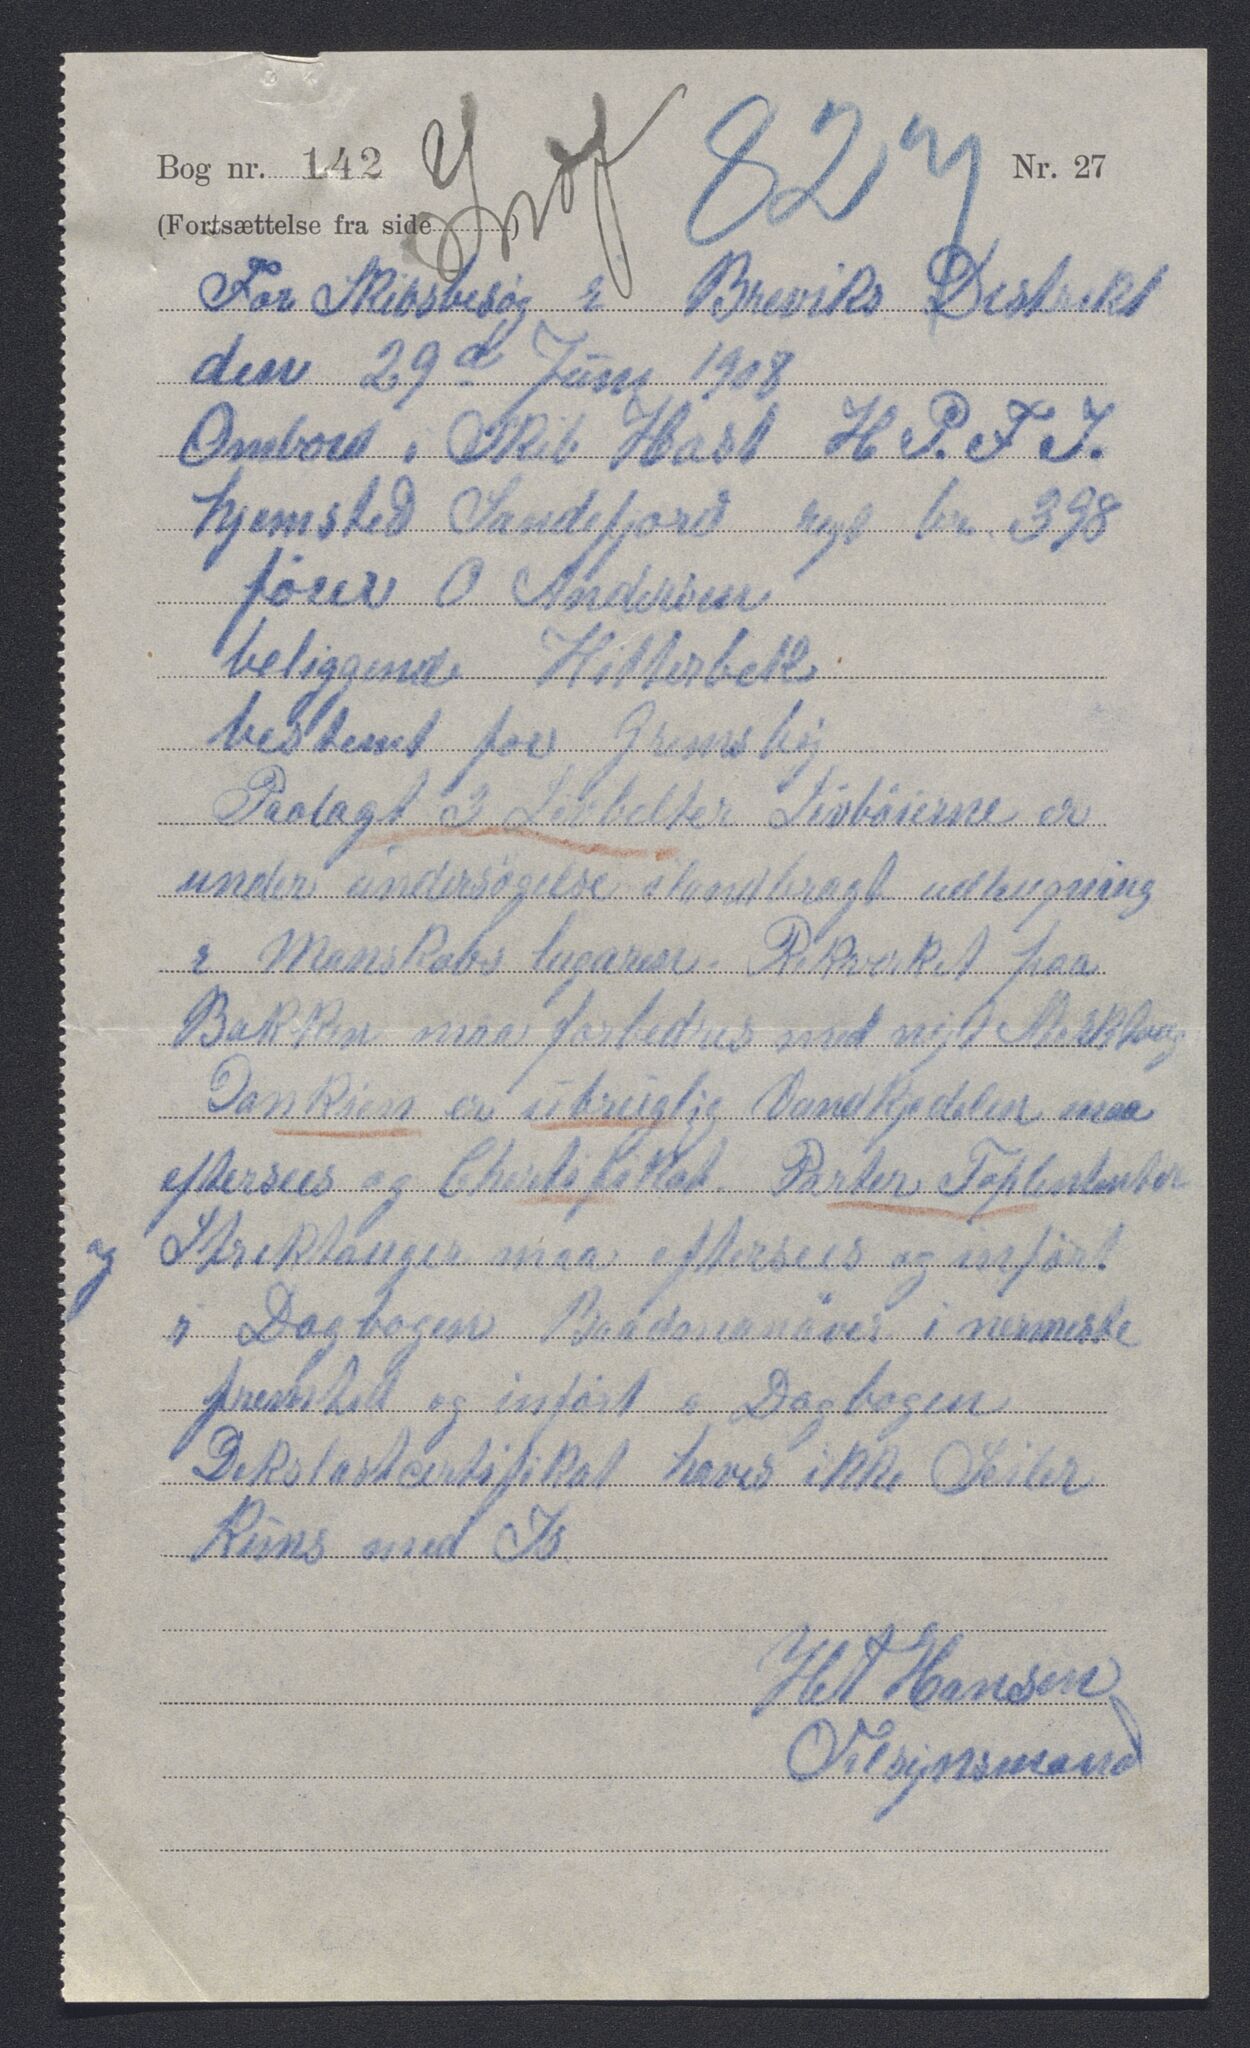 Bog nr. 142 827 Nr. 27
(Fortsættelse fra side )
For Skibsbesög i Breviks Distrikt
den 29d Juni 1908
Ombord i Skib Hast H P. F J.
hjemsted Sandefjord regt br. 398
förer O Andersen
beliggende Hitterbek
bestemt for Grimsby
Paalagt 3 Livbelter Livböierne er
under undersögelse istandbragt
i Manskabs lugaren. Rekværket paa
Bakken maa forbedres med nyt
Donkien er ubruglig Vandkjedelen maa
eftersees og Chertifikat. Parter
og Strektauger maa eftersees og inført
i Dagbogen Baadmanöver i nermeste
fremtid og inført i Dagbogen
Dekslastcertifikat haves ikke Seiler
Kuns med Is.
H A Hansen
Tilsynsmand